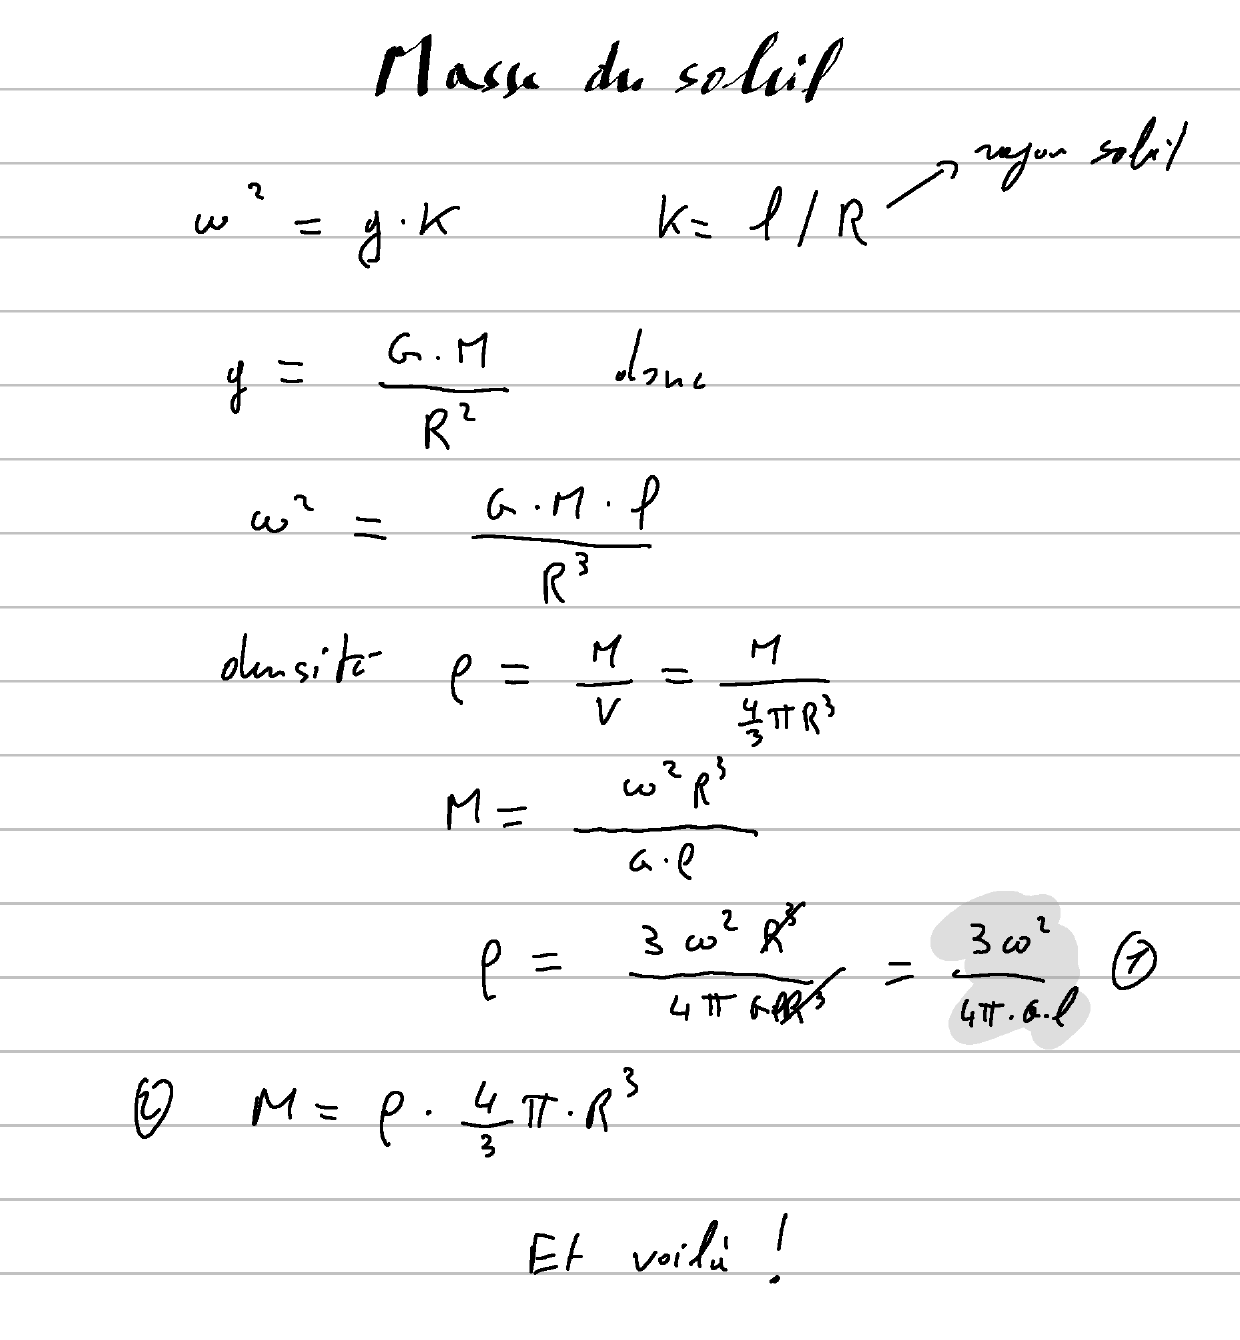 Masse du soleil
ω² = g·K    K = l/R → rayon soleil
g = G·M / R²    donc
ω² = G·M·l / R³
densité ρ = M / V = M / (4/3 π R³)
M = ω² R³ / G·l
ρ = 3 ω² R³ / 4 π G l R³ = 3 ω² / 4π·G·l ①
② M = ρ · 4/3 π · R³
Et voilà !